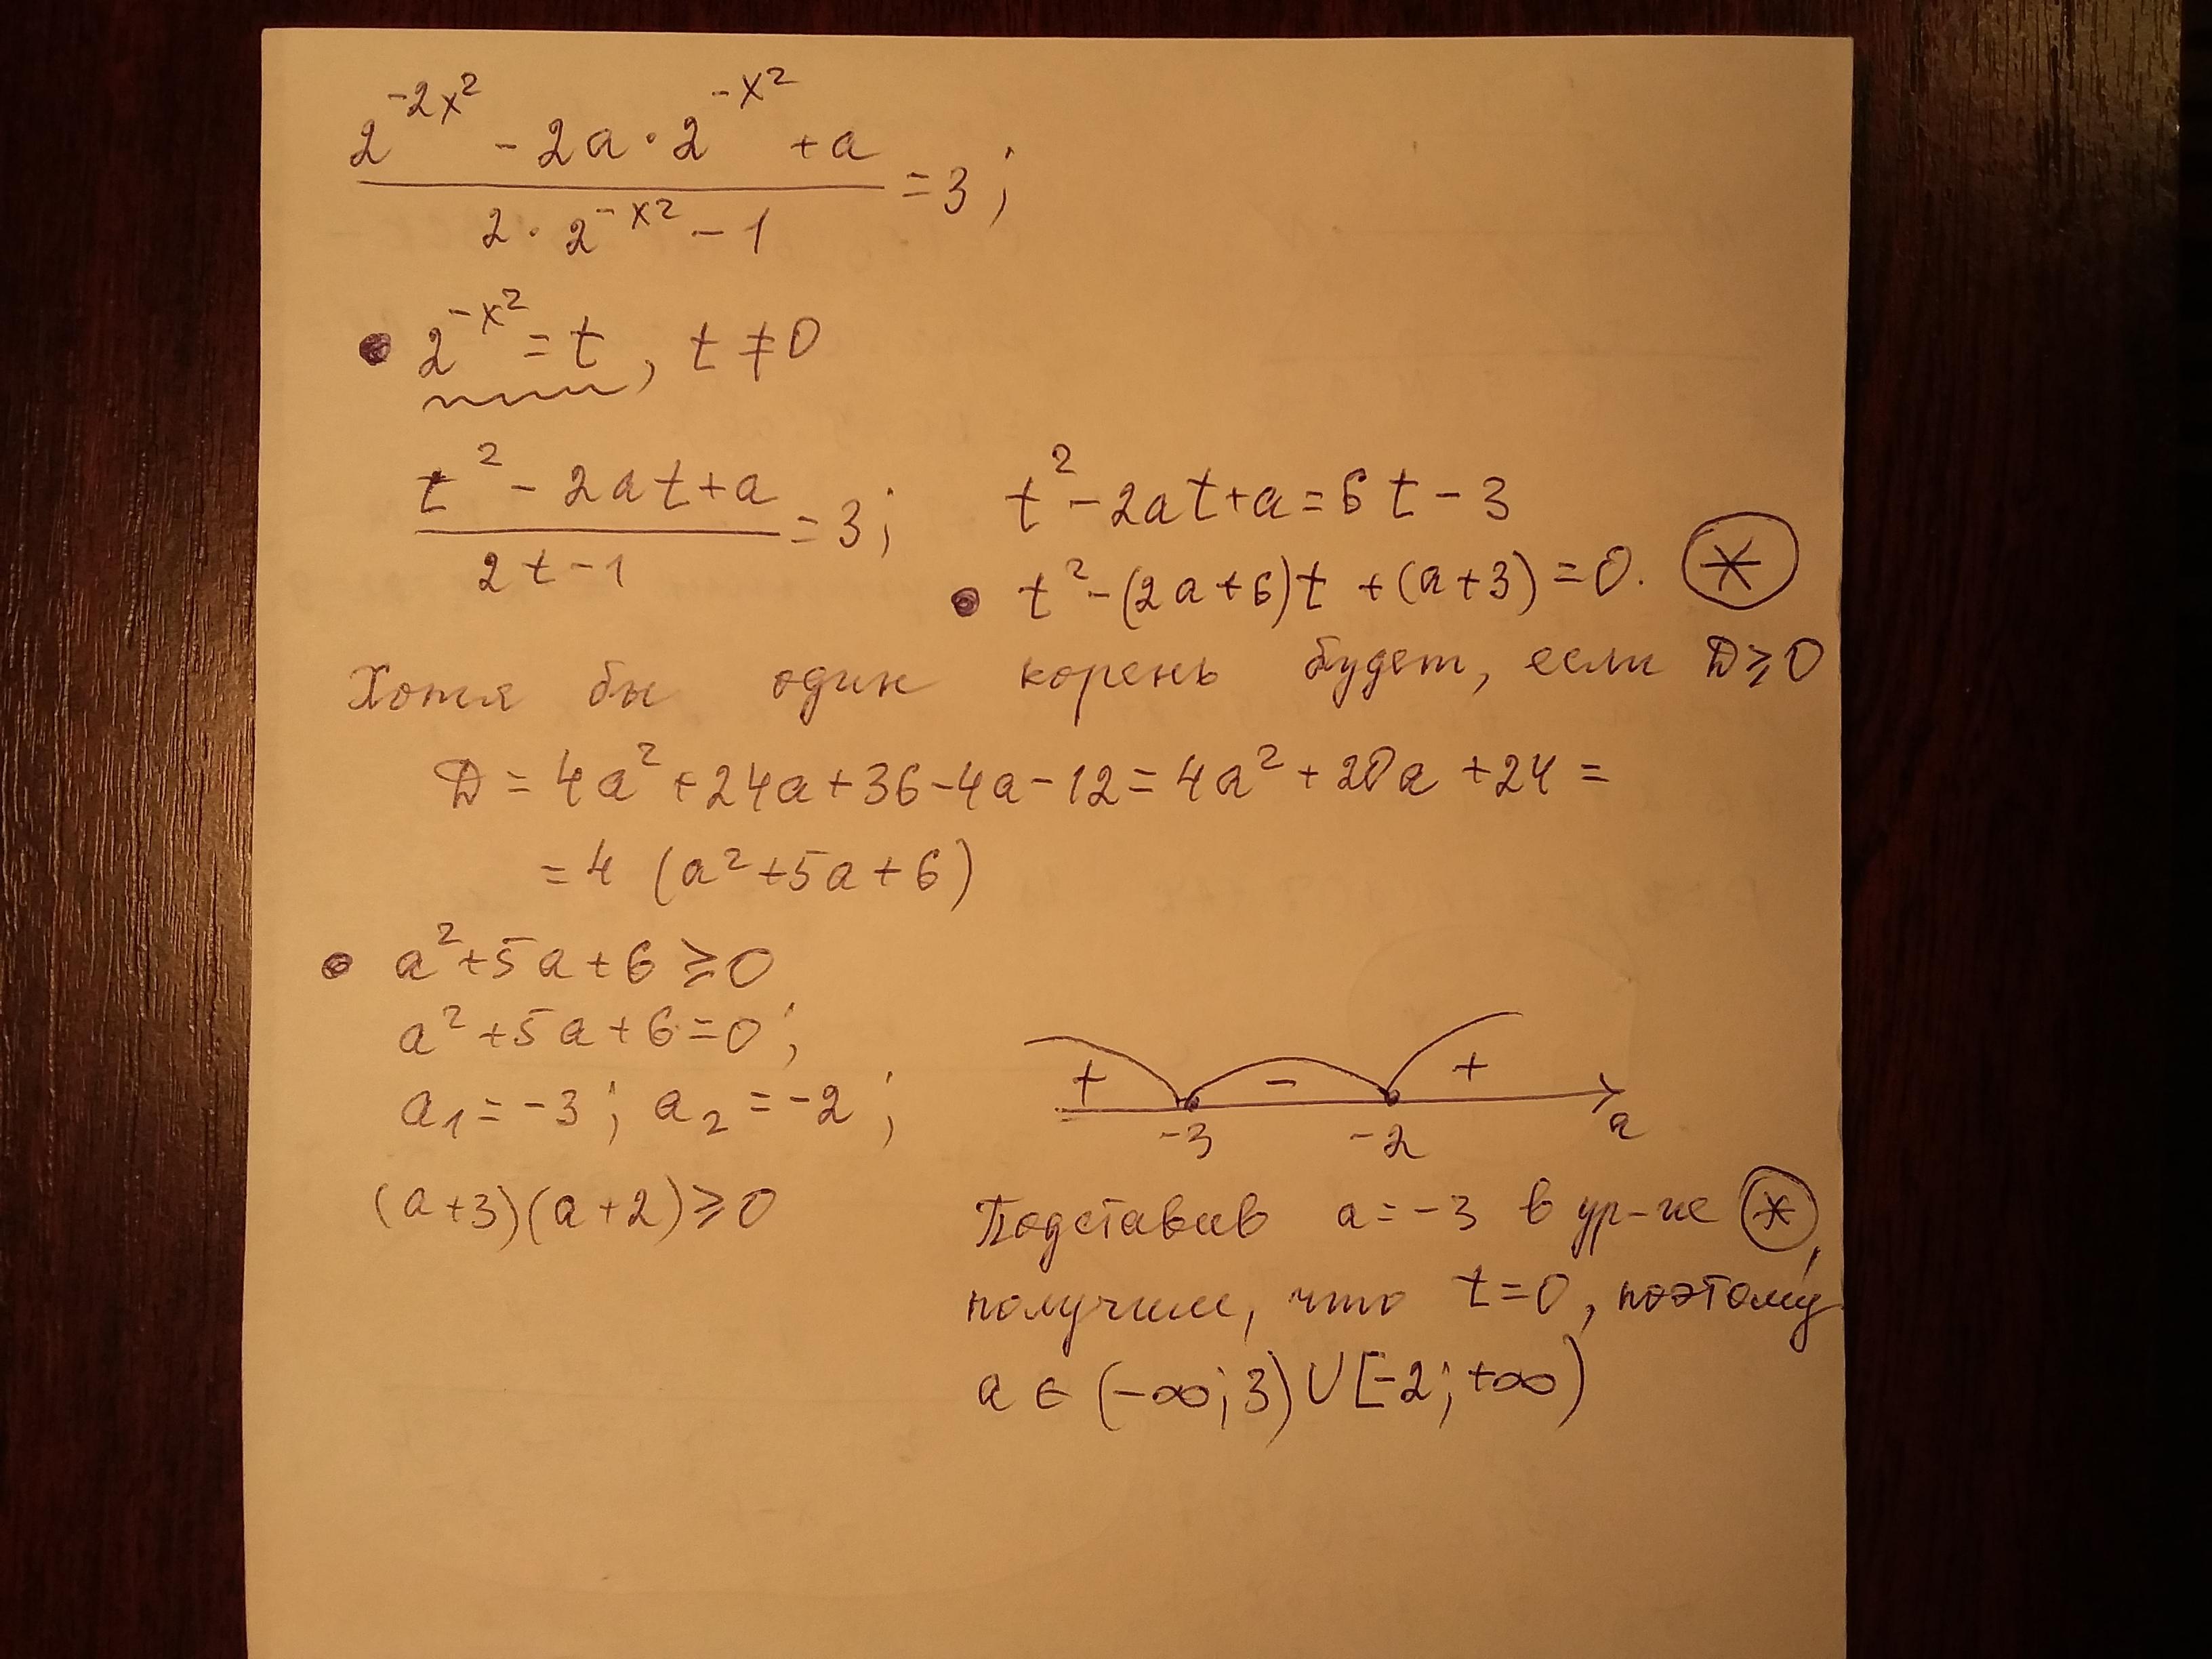 (2^(-2x²) - 2a · 2^(-x²) + a) / (2 · 2^(-x²) - 1) = 3;
• 2^(-x²) = t, t ≠ 0
(t² - 2at + a) / (2t - 1) = 3; t² - 2at + a = 6t - 3
• t² - (2a + 6)t + (a + 3) = 0. ⊛
Хотя бы один корень будет, если D ≥ 0
D = 4a² + 24a + 36 - 4a - 12 = 4a² + 20a + 24 =
= 4 (a² + 5a + 6)
• a² + 5a + 6 ≥ 0
a² + 5a + 6 = 0;
a₁ = -3; a₂ = -2;
(a + 3)(a + 2) ≥ 0
+ - +
-3 -2 a
Подставив a = -3 в ур-ие ⊛,
получим, что t = 0, поэтому
a ∈ (-∞; 3) ∪ [-2; +∞)